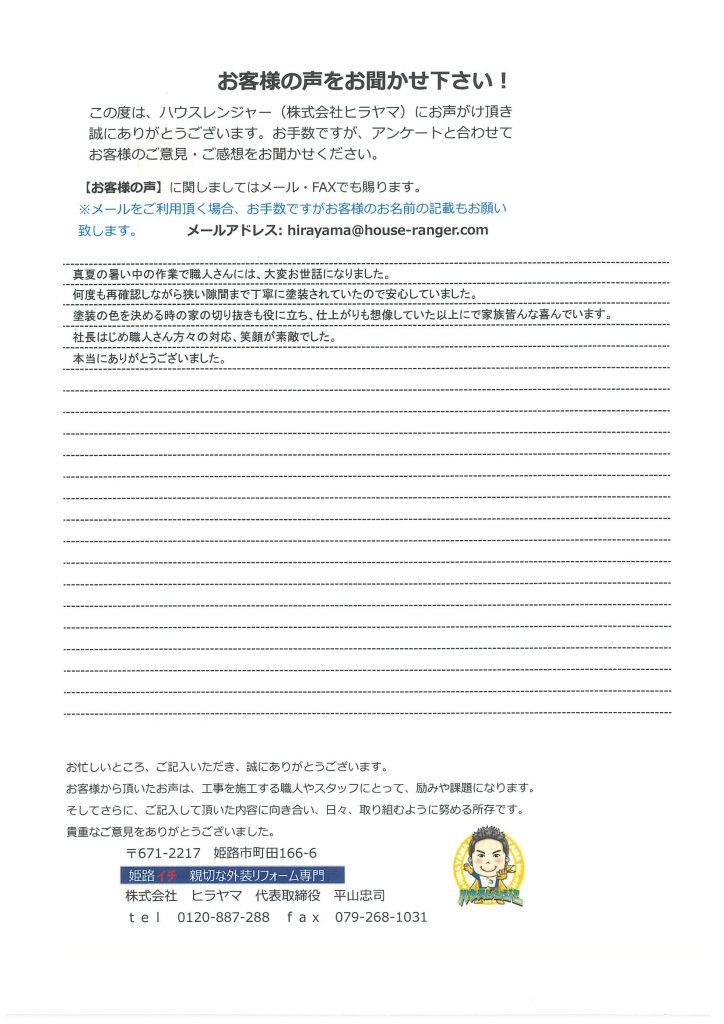 お客様の声をお聞かせ下さい！
この度は、ハウスレンジャー（株式会社ヒラヤマ）にお声がけ頂き
誠にありがとうございます。お手数ですが、アンケートと合わせて
お客様のご意見・ご感想をお聞かせください。
【お客様の声】に関しましてはメール・FAXでも賜ります。
※メールをご利用頂く場合、お手数ですがお客様のお名前の記載もお願い
致します。 メールアドレス: hirayama@house-ranger.com
真夏の暑い中の作業で職人さんには、大変お世話になりました。
何度も再確認しながら狭い隙間まで丁寧に塗装されていたので安心していました。
塗装の色を決める時の家の切り抜きも役に立ち、仕上がりも想像していた以上にで家族皆んな喜んでいます。
社長はじめ職人さん方々の対応、笑顔が素敵でした。
本当にありがとうございました。
お忙しいところ、ご記入いただき、誠にありがとうございます。
お客様から頂いたお声は、工事を施工する職人やスタッフにとって、励みや課題になります。
そしてさらに、ご記入して頂いた内容に向き合い、日々、取り組むように努める所存です。
貴重なご意見をありがとうございました。
〒671-2217 姫路市町田166-6
姫路イチ 親切な外装リフォーム専門
株式会社 ヒラヤマ 代表取締役 平山忠司
ｔｅｌ 0120-887-288 ｆａｘ 079-268-1031
ハウスレンジャー